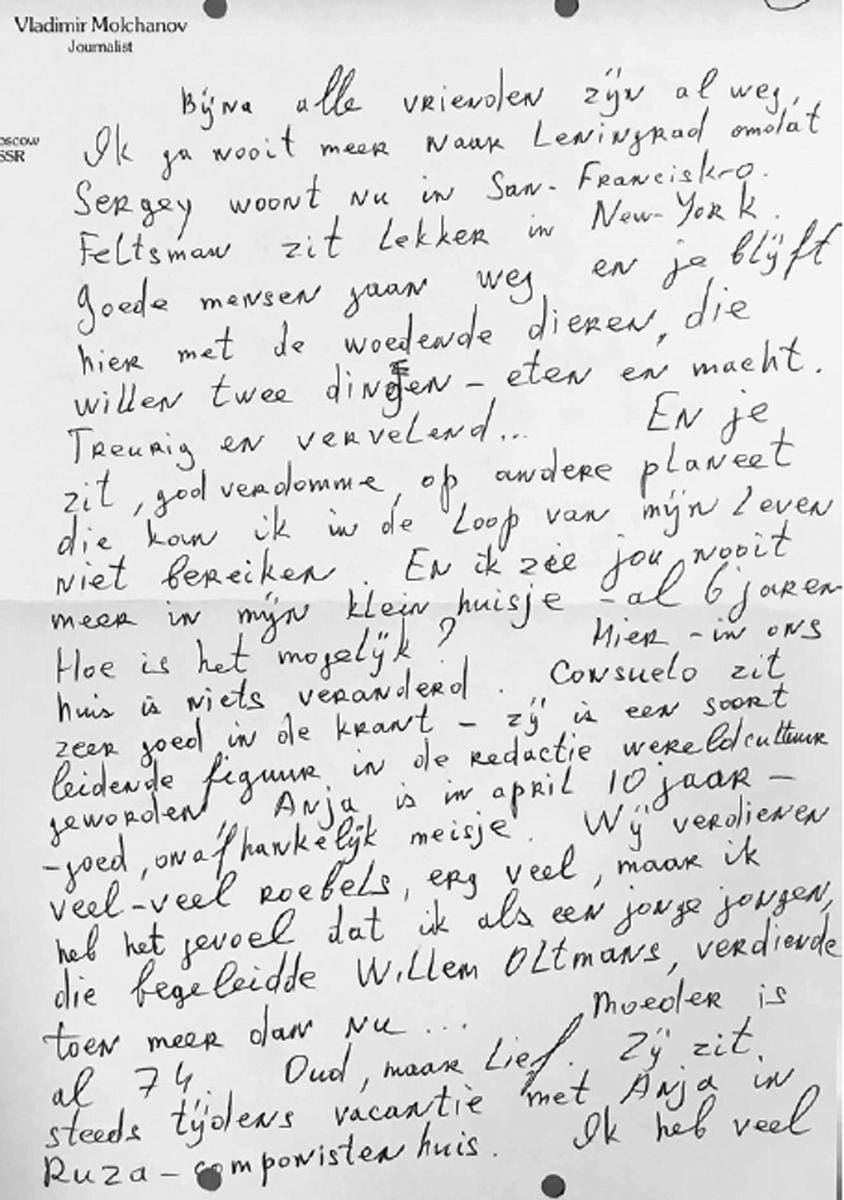 Vladimir Molchanov
Journalist
oscow
SSR
Bijna alle vrienden zijn al weg,
Ik ga nooit meer naar Leningrad omdat
Sergey woont nu in San-Francisko.
Feltsman zit lekker in New-York.
goede mensen gaan weg en je blijft
hier met de woedende dieren, die
willen twee dingen – eten en macht.
Treurig en vervelend... En je
zit, godverdomme, op andere planeet
die kan ik in de loop van mijn leven
niet bereiken. En ik zie jou nooit
meer in mijn klein huisje – al 6 jaren
Hoe is het mogelijk? Hier – in ons
huis is niets veranderd. Consuelo zit
zeer goed in de krant – zij is een soort
leidende figuur in de redactie wereldcultuur
geworden. Anja is in april 10 jaar –
– goed, onafhankelijk meisje. Wij verdienen
veel-veel roebels, erg veel, maar ik
heb het gevoel dat ik als een jonge jongen,
die begeleidde Willem Oltmans, verdiende
toen meer dan nu... Moeder is
al 74. Oud, maar lief. Zij zit
steeds tijdens vacantie met Anja in
Ruza – componistenhuis. Ik heb veel